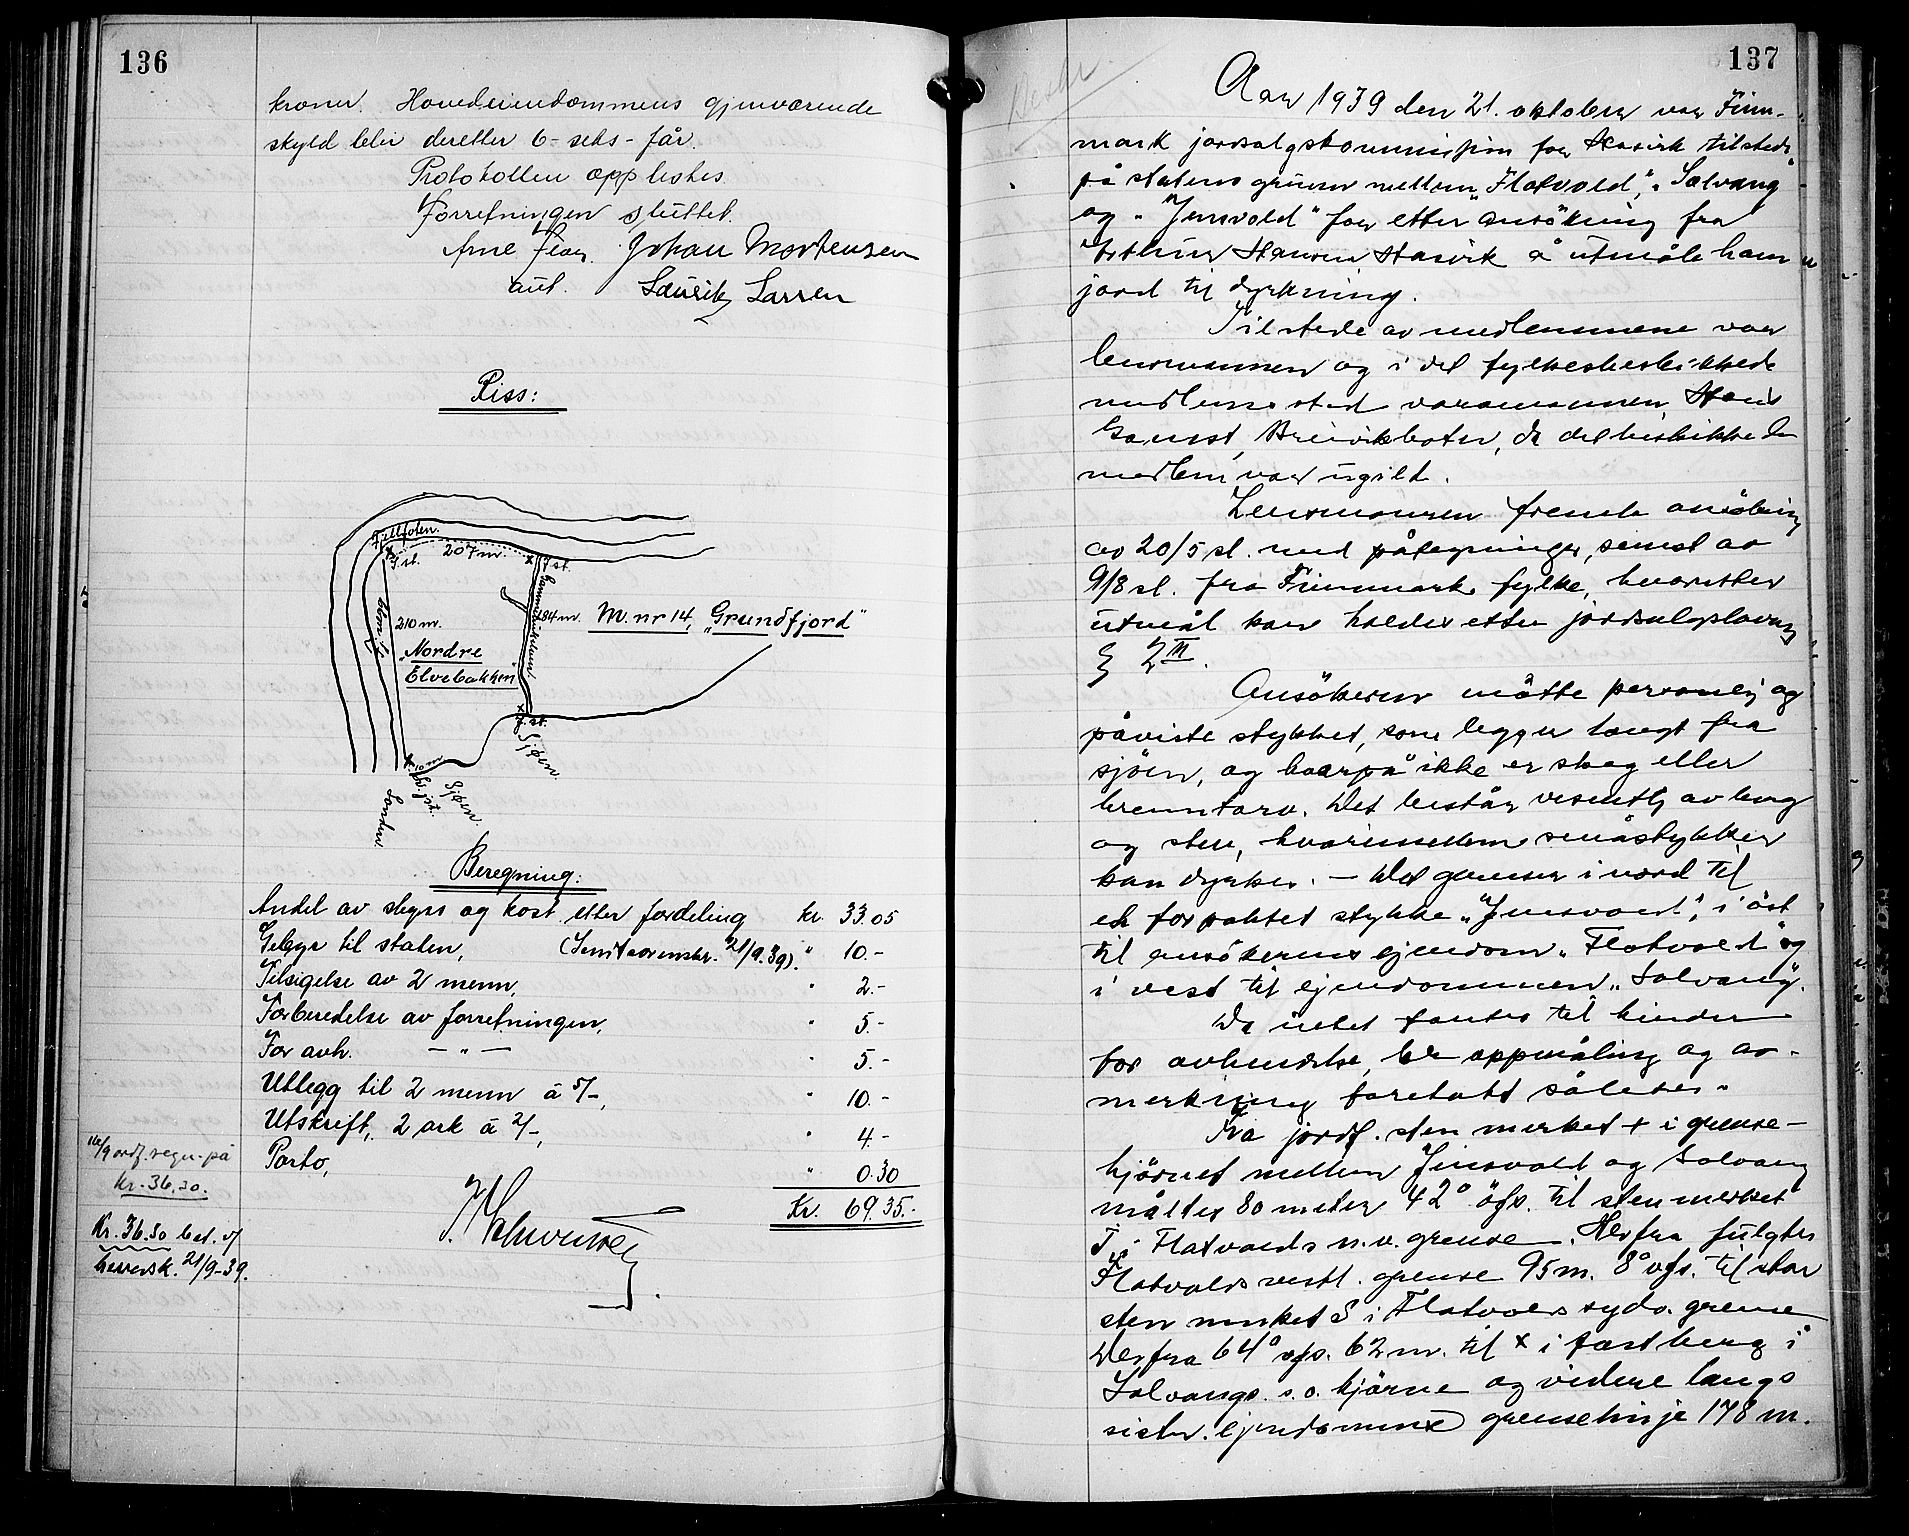 136
kroner. Hovedeiendommens gjenværende
skyld blir deretter 6 - seks - får.
Protokollen opplestes.
Forretningen sluttet.
Arne Johan Mortensen
aut. Lauritz Larsen
Riss:
Fjellfoten.
J.st. 207 m. J.st.
210 m. 184 m. M. nr 14, "Grundfjord"
"Nordre
Elvebakken"
J.st.
10 m
Sjøen.
Sjøen.
j.st.
Sonden
Beregning:
Andel av skyss og kost etter fordeling kr. 33.05
Gebyr til staten, 21/9.39). " 10.-
Tilsigelse av 2 menn, " 2.-
Forberedelse av forretningen, " 5.-
For avh. - " - " 5.-
Utlegg til 2 menn á 5/-, " 10.-
Utskrift, 2 ark á 2/-, " 4.-
Porto, " 0.30
Kr. 69.35.-
16/9 ordf. regn. på
kr. 36.30.
Kr. 36.30 bet. v/
herredsk. 21/9-39.
137
Aar 1939 den 21. oktober var Finn-
mark jordsalgskommisjon for Hasvik tilstede
på statens grunn mellem "Flatvold", "Solvang"
og "Jensvold" for etter ansökning fra
Arthur Hansen, Hasvik å utmåle ham
jord til dyrkning.
Tilstede av medlemmene var
lensmannen og i det fylkesbeskikkede
medlems sted varamannen Hans
Gamst, Breivikbotn, da det beskikkede
medlem var ugild.
Lensmannen fremla ansökning
av 20/5 sl. med påtegninger, senest av
9/8 sl. fra Finnmark fylke, hvoretter
utmål kan holdes etter jordsalgslovens
§ 2 III.
Ansökeren mötte personlig og
påviste stykket, som legger langt fra
sjöen, og hvorpå ikke er skog eller
brenntorv. Det består vesentlig av berg
og sten, hvorimellem småstykker
kan dyrkes. - Det grenser i nord til
et forpaktet stykke "Jensvold", i öst
til ansökerens ejendom "Flatvold" og
i vest til ejendommen "Solvang".
Da intet fantes til hinder
for avhendelse, ble oppmåling og av-
merkning foretatt således:
Fra jordf. sten merket + i grense-
hjörnet mellem Jensvold og Solvang
måltes 80 meter 42° öfs. til sten merket
+ i Flatvolds n.v. grense. Herfra fulgtes
Flatvolds vestl. grense 95 m. 8° vfs. til stor
sten merket S i Flatvolds sydv. grense
Derfra 64° vfs. 62 m. til x i fast berg i
Solvangs s.o. hjörne og videre langs
sistn. ejendommes grenselinje 178 m.